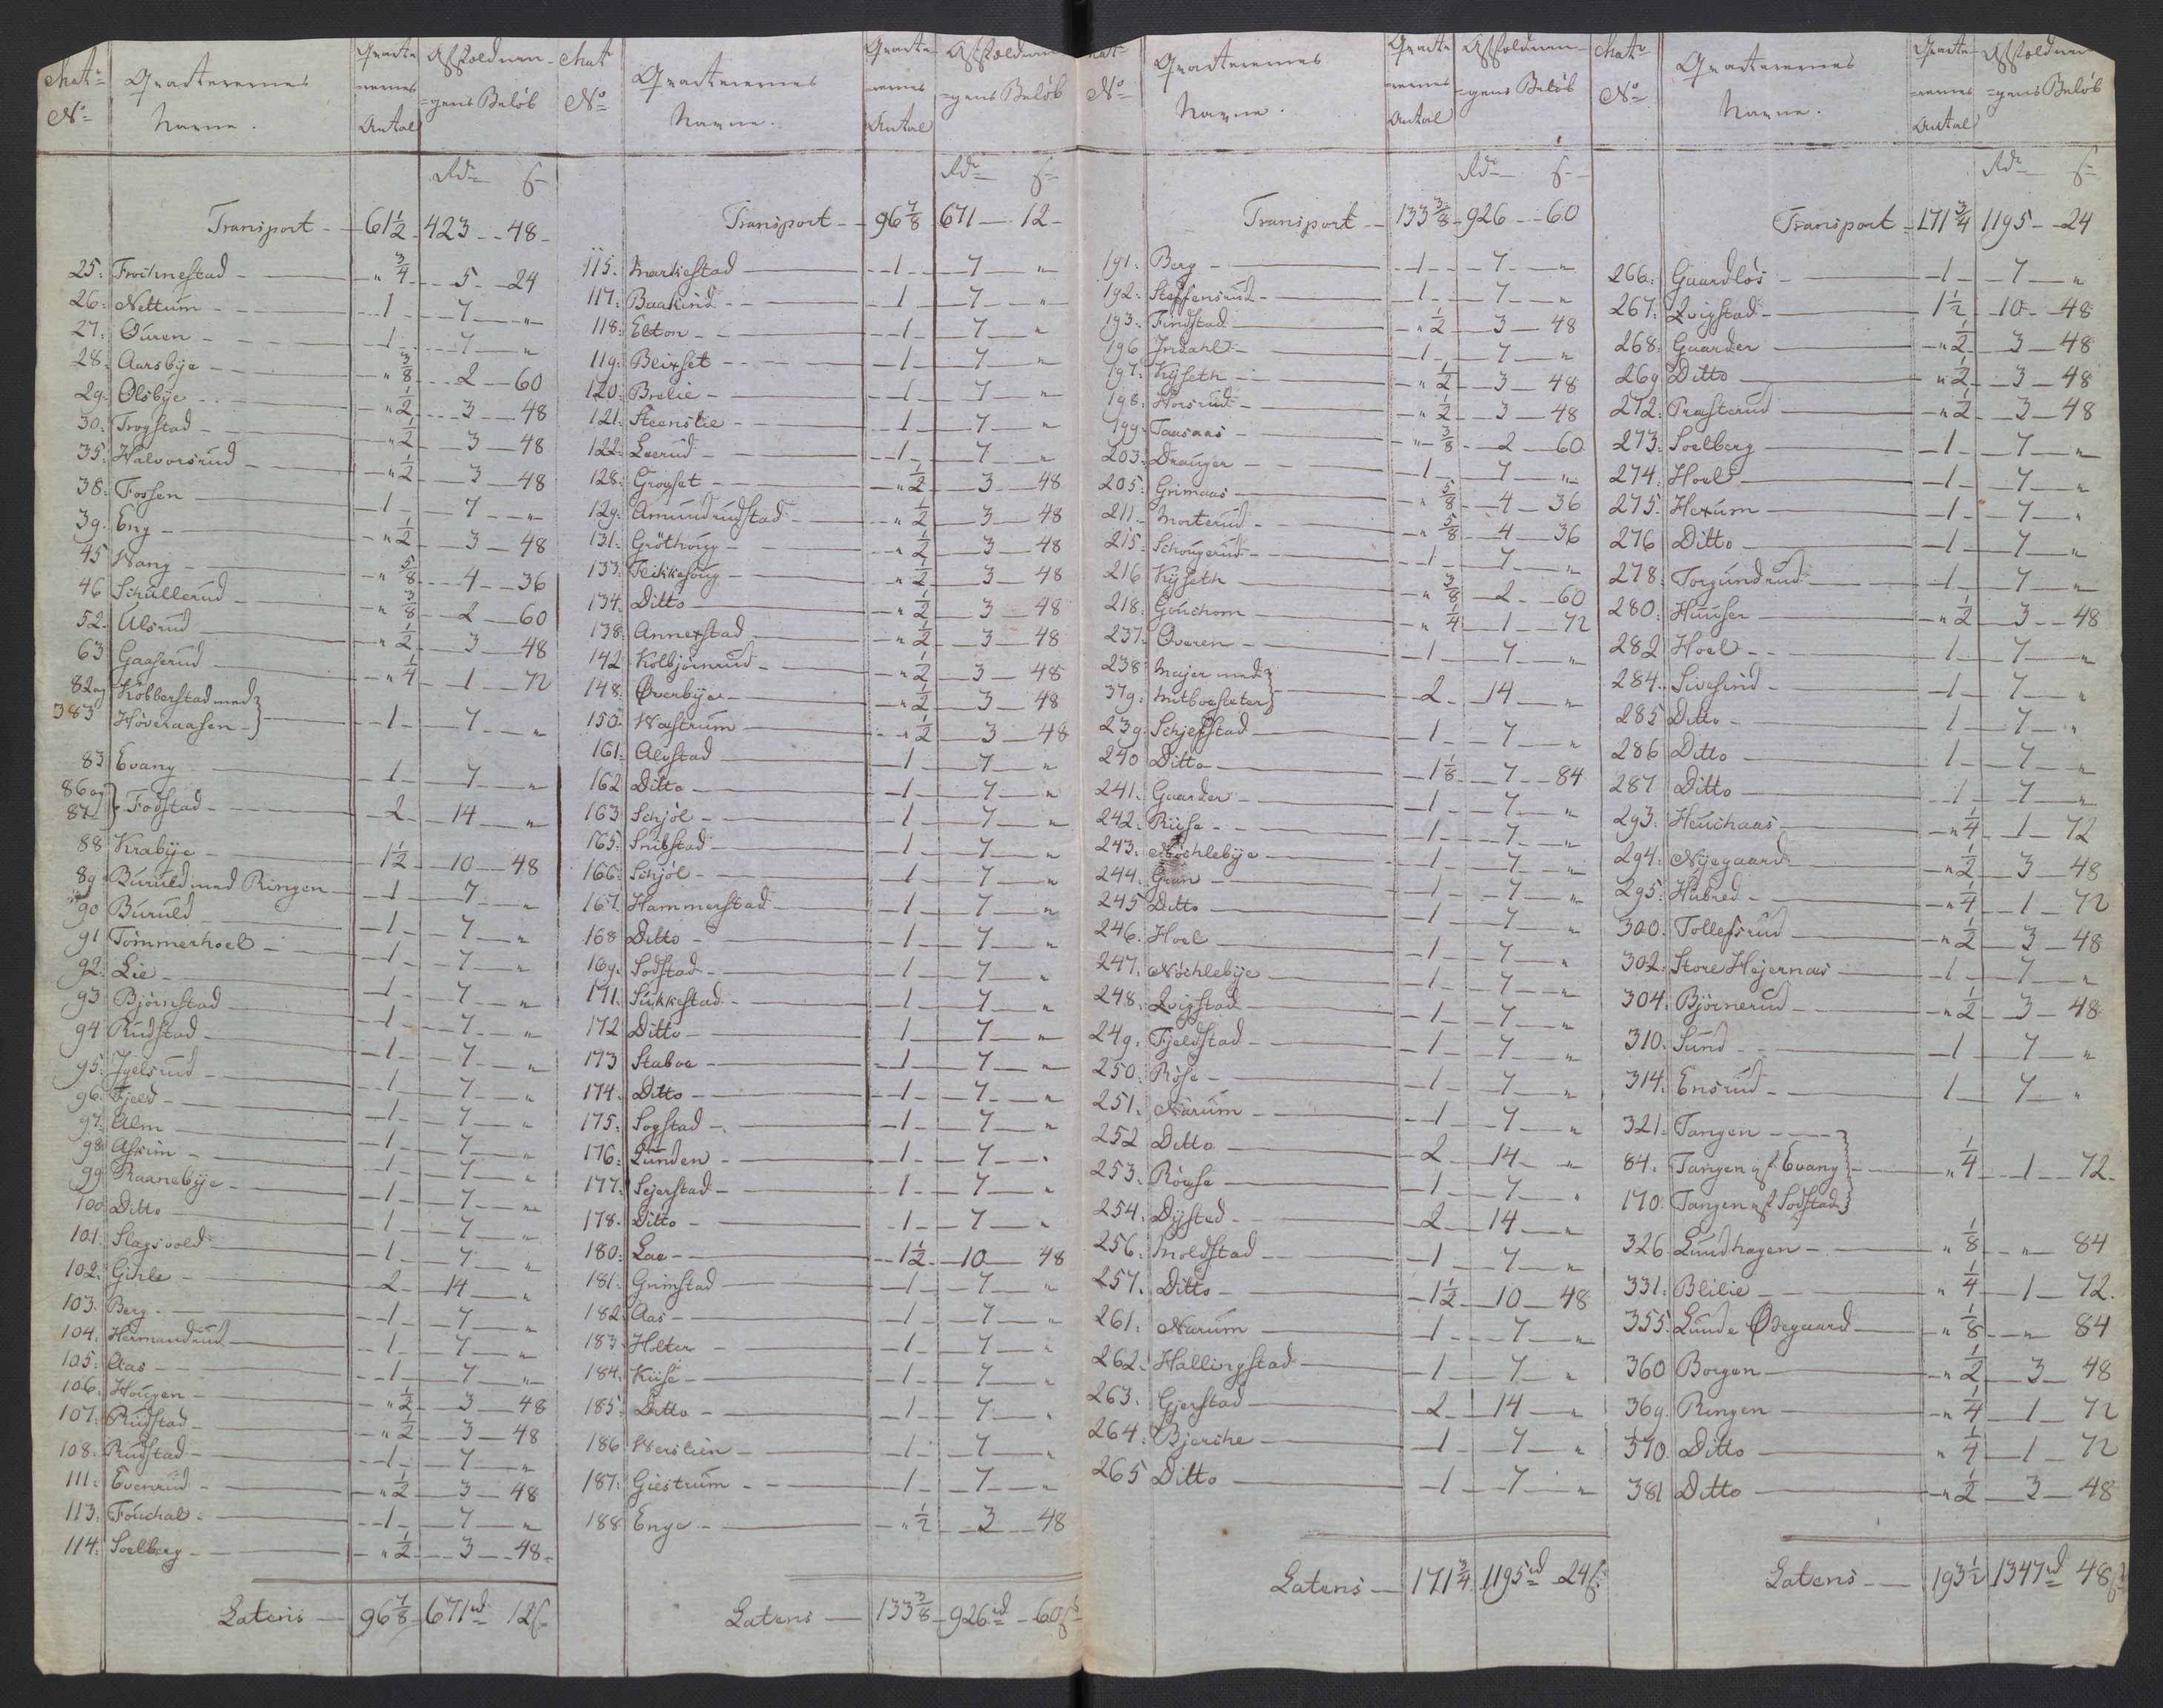 Matr No | Qvarterernes Navne. | Qvarterernes Antal | Afskoldningens Beløb
Rdr ß
Transport 61½ 423 48
25. Frochnestad ¾ 5 24
26. Nettum 1 7 "
27. Ouren 1 7 "
28. Aarsbye ⅜ 2 60
29. Olsbye ½ 3 48
30. Trogstad ½ 3 48
35. Halvorsrud ½ 3 48
38. Fossen 1 7 "
39. Eng ½ 3 48
45 Wang ⅝ 4 36
46 Schullerud ⅜ 2 60
52. Ulsrud ½ 3 48
63 Gaaserud ¼ 1 72
82 og Kobberstad med
383 Høveraasen 1 7 "
83 Evang 1 7 "
86 og
87 Fodstad 2 14 "
88 Krabye 1½ 10 48
89 Buruld med Ringen 1 7 "
90 Buruld 1 7 "
91 Tømmerhoel 1 7 "
92. Lie 1 7 "
93 Bjørnstad 1 7 "
94 Rudstad 1 7 "
95. Igelsrud 1 7 "
96. Fjeld 1 7 "
97. Alm 1 7 "
98. Askim 1 7 "
99. Raanebye 1 7 "
100 Ditto 1 7 "
101. Slagsvold 1 7 "
102. Gihle 2 14 "
103. Berg 1 7 "
104. Hermandrud 1 7 "
105. Aas 1 7 "
106. Hougen ½ 3 48
107. Rudstad ½ 3 48
108. Rudstad 1 7 "
111. Evenrud ½ 3 48
113. Fouchal 1 7 "
114. Soelberg ½ 3 48
Lateris 96⅞ 671rd 12ß

Matr No | Qvarterernes Navne. | Qvarterernes Antal | Afskoldningens Beløb
Rdr ß
Transport 96⅞ 671 12
115. Markestad 1 7 "
117. Baakind 1 7 "
118. Elton 1 7 "
119. Blixset 1 7 "
120. Brelie 1 7 "
121. Steenslie 1 7 "
122. Leerud 1 7 "
128. Grogset ½ 3 48
129. Amundrudstad ½ 3 48
131. Grøthoug ½ 3 48
133. Fikkesoug ½ 3 48
134. Ditto ½ 3 48
138. Annexstad ½ 3 48
142 Kolbjørnrud ½ 3 48
148. Øverbye ½ 3 48
150. Wastrum ½ 3 48
161. Alvstad 1 7 "
162 Ditto 1 7 "
163 Schjøl 1 7 "
165. Snibstad 1 7 "
166. Schjøl 1 7 "
167. Hammerstad 1 7 "
168 Ditto 1 7 "
169. Sodstad 1 7 "
171. Sukkestad 1 7 "
172 Ditto 1 7 "
173 Staboe 1 7 "
174. Ditto 1 7 "
175. Sogstad 1 7 "
176. Lunden 1 7 "
177. Sejerstad 1 7 "
178. Ditto 1 7 "
180. Lae 1½ 10 48
181. Grimstad 1 7 "
182 Aas 1 7 "
183 Holter 1 7 "
184. Kiise 1 7 "
185. Ditto 1 7 "
186 Werslien 1 7 "
187. Giestrum 1 7 "
188 Enge ½ 3 48
Lateris 133⅜ 926rd 60ß

Matr No | Qvarterernes Navne. | Qvarterernes Antal | Afskoldningens Beløb
Rdr ß
Transport 133⅜ 926 60
191. Berg 1 7 "
192. Steffensrud 1 7 "
193. Findstad ½ 3 48
196 Indahl 1 7 "
197. Kyseth ½ 3 48
198. Horsrud ½ 3 48
199. Taasaas ⅜ 2 60
203. Drauger 1 7 "
205. Grimaas ⅝ 4 36
211. Morterud ⅝ 4 36
215. Schougerud 1 7 "
216 Kyseth ⅜ 2 60
218. Gouchom ¼ 1 72
237. Overen 1 7 "
238 Majer med
379. Mitboesæter 2 14 "
239. Schjefstad 1 7 "
240 Ditto 1⅛ 7 84
241. Gaarder 1 7 "
242. Riise 1 7 "
243. Nøchlebye 1 7 "
244. Gran 1 7 "
245 Ditto 1 7 "
246. Hoel 1 7 "
247. Nøchlebye 1 7 "
248. Qvigstad 1 7 "
249. Fjeldstad 1 7 "
250. Røise 1 7 "
251. Narum 1 7 "
252 Ditto 2 14 "
253. Røuse 1 7 "
254. Dysted 2 14 "
256. Moldstad 1 7 "
257. Ditto 1½ 10 48
261. Narum 1 7 "
262. Hallingstad 1 7 "
263. Gjerstad 2 14 "
264. Bjerche 1 7 "
265 Ditto 1 7 "
Lateris 171¾ 1195rd 24ß

Matr No | Qvarterernes Navne. | Qvarterernes Antal | Afskoldningens Beløb
Rdr ß
Transport 171¾ 1195 24
266. Gaardløs 1 7 "
267. Qvigstad 1½ 10 48
268. Gaarder ½ 3 48
269 Ditto ½ 3 48
272. Præsterud ½ 3 48
273. Soelberg 1 7 "
274. Hoel 1 7 "
275. Hexum 1 7 "
276 Ditto 1 7 "
278. Torgundrud 1 7 "
280. Huuser ½ 3 48
282 Hoel 1 7 "
284. Sivesind 1 7 "
285 Ditto 1 7 "
286 Ditto 1 7 "
287 Ditto 1 7 "
293. Heuchaas ¼ 1 72
294. Nyegaard ½ 3 48
295. Hubred ¼ 1 72
300. Tollefsrud ½ 3 48
302. Store Hejernæs 1 7 "
304. Bjørnerud ½ 3 48
310. Sund 1 7 "
314. Ensrud 1 7 "
321. Tangen
84. Tangen af Evang ¼ 1 72
170. Tangen af Sodstad
326 Lundhagen ⅛ " 84
331. Blilie ¼ 1 72
355. Lunde Ødegaard ⅛ " 84
360 Borgen ½ 3 48
369. Ringen ¼ 1 72
370. Ditto ¼ 1 72
381 Ditto ½ 3 48
Lateris 193½ 1347rd 48ß